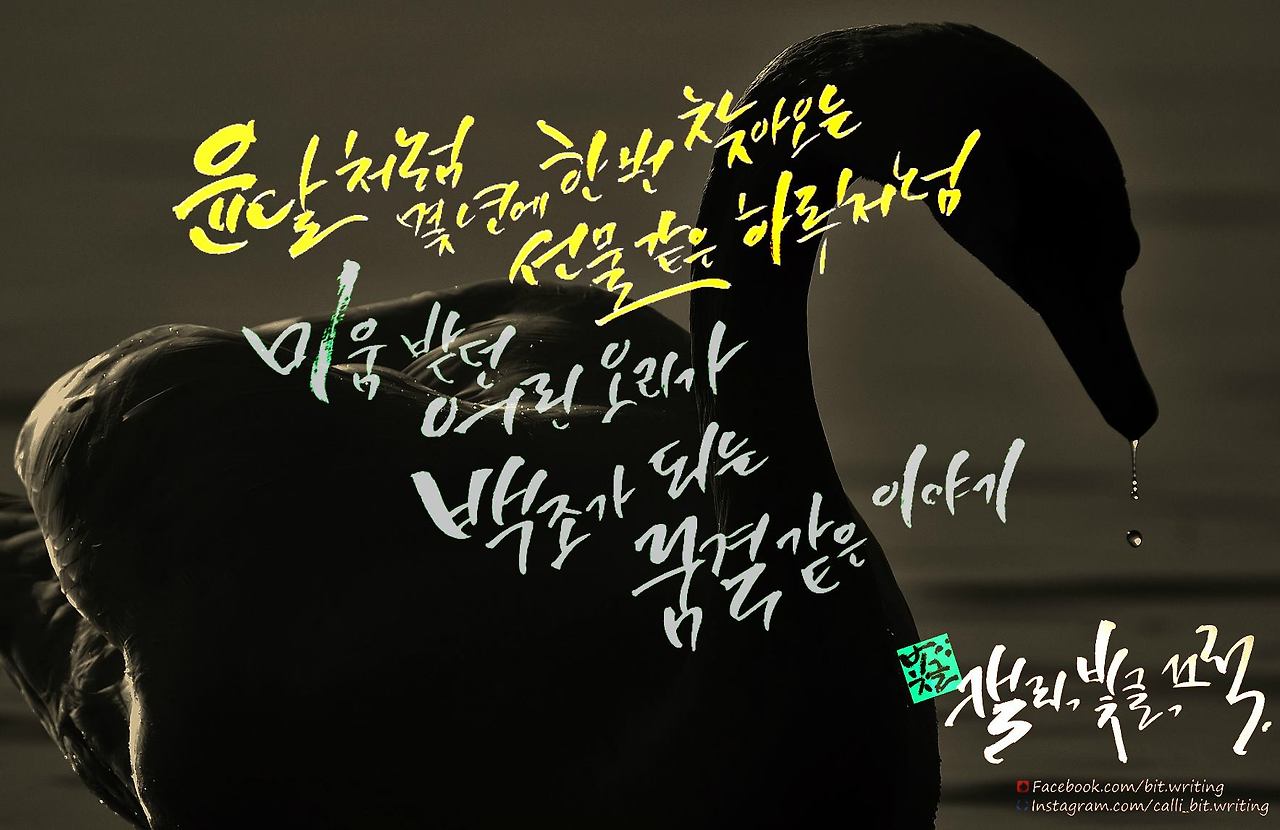 윤달처럼 몇 년에 한 번 찾아오는
선물 같은 하루처럼
미움 받던 어린 오리가
백조가 되는
꿈결 같은 이야기
빛글
캘리, 빛글, 끄적.
Facebook.com/bit.writing
Instagram.com/calli_bit.writing